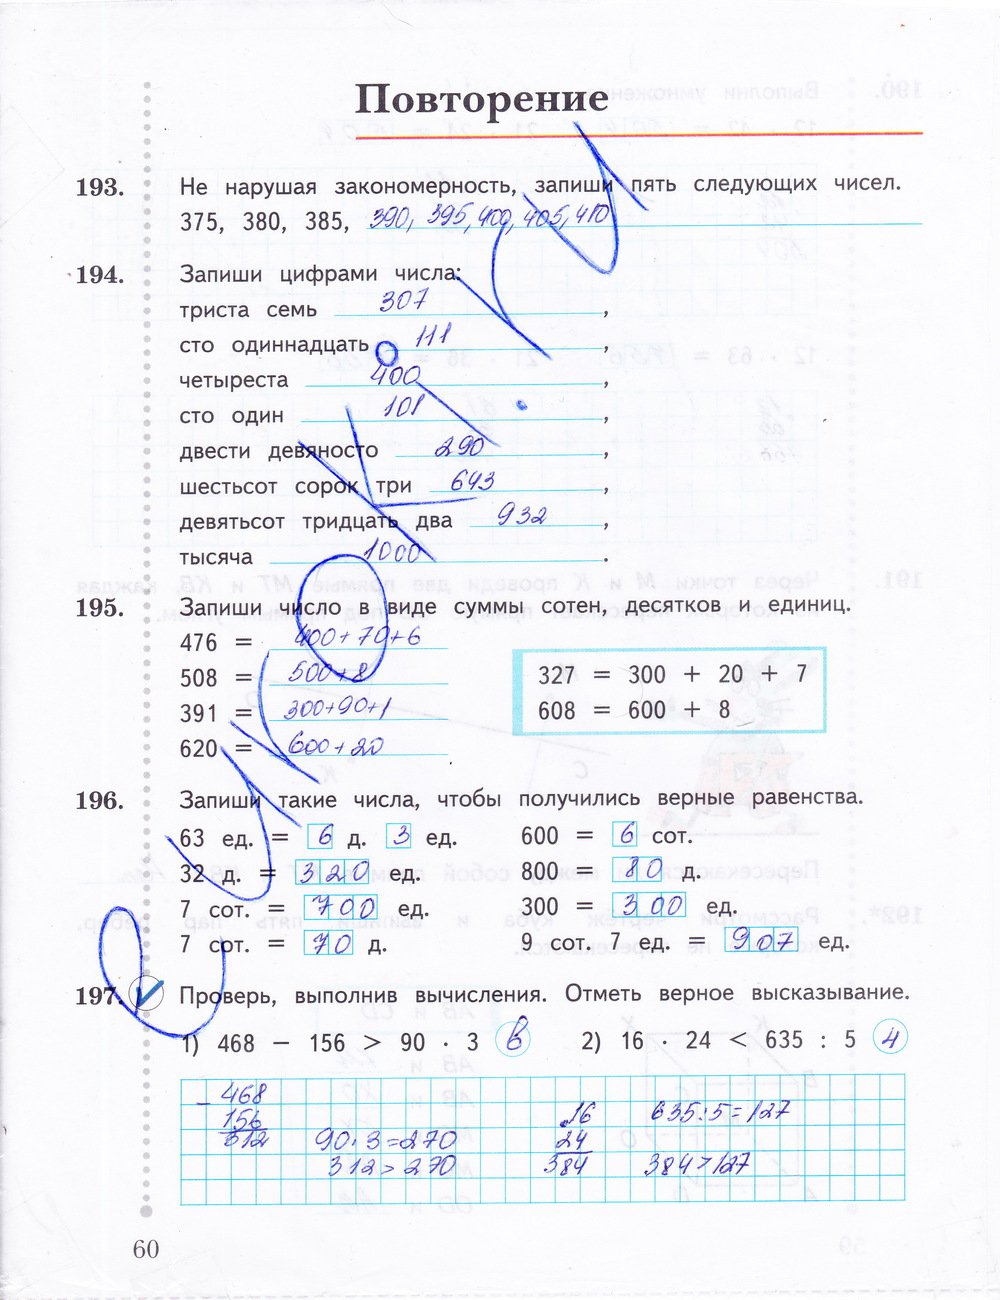 Повторение
193. Не нарушая закономерность, запиши пять следующих чисел.
375, 380, 385, 390, 395, 400, 405, 410
194. Запиши цифрами числа:
триста семь 307,
сто одиннадцать 111,
четыреста 400,
сто один 101,
двести девяносто 290,
шестьсот сорок три 643,
девятьсот тридцать два 932,
тысяча 1000.
195. Запиши число в виде суммы сотен, десятков и единиц.
476 = 400+70+6
508 = 500+8
391 = 300+90+1
620 = 600+20
327 = 300 + 20 + 7
608 = 600 + 8
196. Запиши такие числа, чтобы получились верные равенства.
63 ед. = 6 д. 3 ед. 600 = 6 сот.
32 д. = 320 ед. 800 = 80 д.
7 сот. = 700 ед. 300 = 300 ед.
7 сот. = 70 д. 9 сот. 7 ед. = 907 ед.
197. Проверь, выполнив вычисления. Отметь верное высказывание.
1) 468 − 156 > 90 · 3 в 2) 16 · 24 < 635 : 5 ч
468
− 156 16 635:5=127
312 90·3=270 24
312>270 384 384>127
60